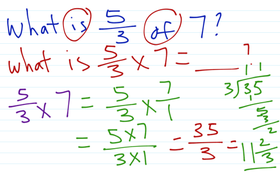 What is 5/3 of 7?
what is 5/3 × 7 = ___?
5/3 × 7 = 5/3 × 7/1
= 5×7/3×1 = 35/3 = 11 2/3
11
3)35
3
5
3
2